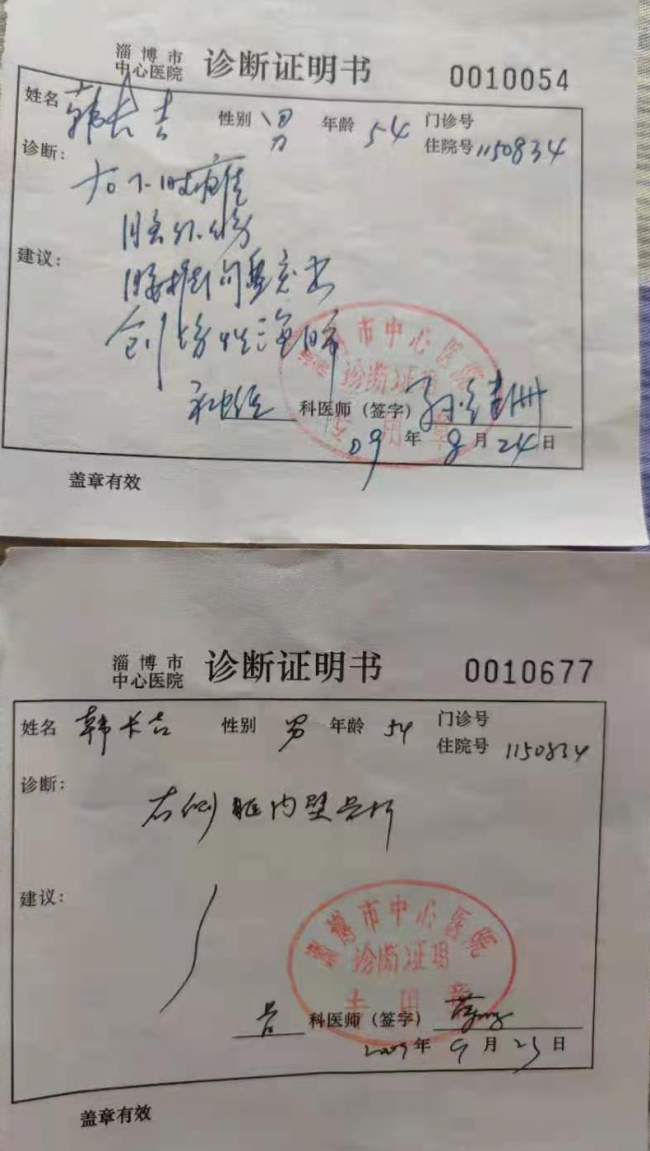 淄博市
中心医院 诊断证明书 0010054
姓名 韩长吉 性别 男 年龄 54 门诊号
住院号 1150834
诊断:
脑外伤
建议:
腰椎间盘突出
创伤性
科医师（签字）
09年 9月 24日
市中心医院
诊断证明
专用章
盖章有效
淄博市
中心医院 诊断证明书 0010677
姓名 韩长吉 性别 男 年龄 54 门诊号
住院号 1150834
诊断:
右侧眶内壁骨折
建议:
淄博市中心医院
诊断证明
专用章
科医师（签字）
2009年 9月 25日
盖章有效